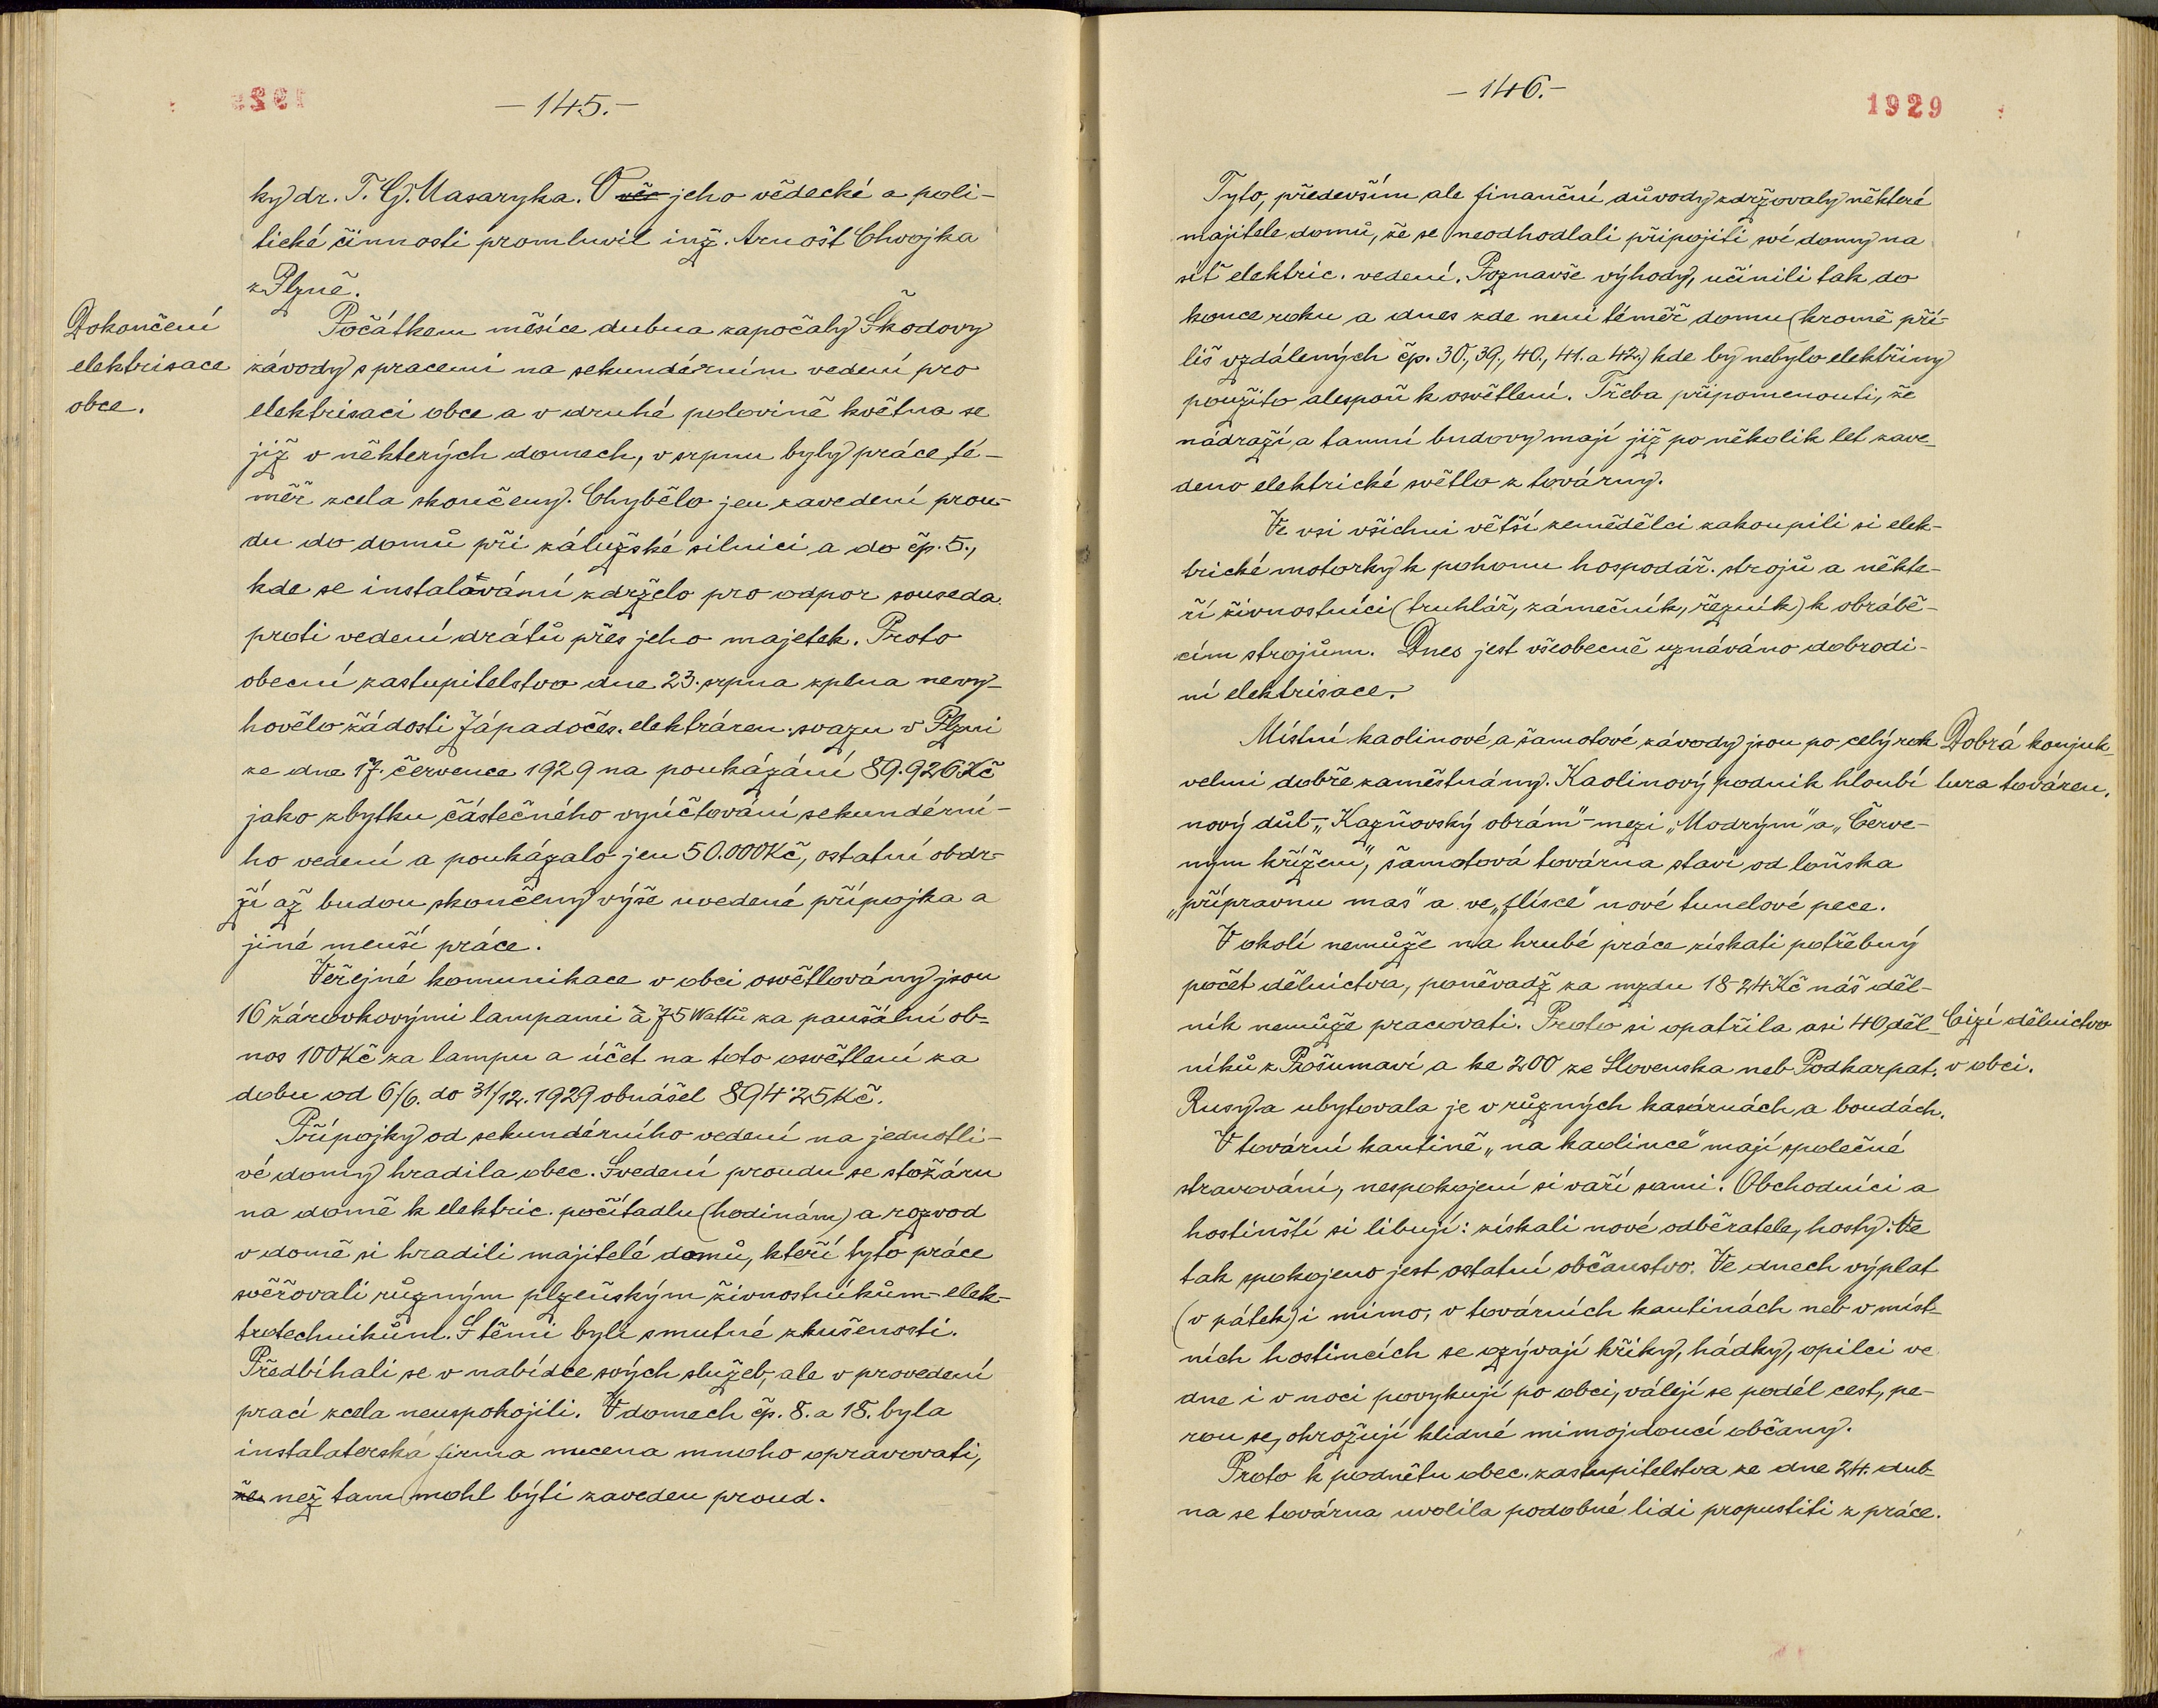 1929
-145.-
ky dr. T. G. Masaryka. O věr jeho vědecké a poli-
tické činnosti promluvil inž. Arnošt Chvojka
z Plzně.
Dokončení
elektrisace
obce.
Počátkem měsíce dubna započaly Škodovy
závody s pracemi na sekundérním vedení pro
elektrisaci obce a v druhé polovině května se
již v některých domech, v srpnu byly práce té-
měř zcela skončeny. Chybělo jen zavedení prou-
du do domů při zálužské silnici a do čp. 5.,
kde se instalování zdrželo pro odpor souseda
proti vedení drátů přes jeho majetek. Proto
obecní zastupitelstvo dne 23. srpna zplna nevy-
hovělo žádosti Západočes. elektráren. svazu v Plzni
ze dne 17. července 1929 na poukázání 89.926 Kč
jako zbytku částečného vyúčtování sekundérní-
ho vedení a poukázalo jen 50.000 Kč, ostatní obdr-
ží až budou skončeny výše uvedené přípojka a
jiné menší práce.
Veřejné komunikace v obci osvětlovány jsou
16 žárovkovými lampami à 75 Wattů za paušální ob-
nos 100 Kč za lampu a účet na toto osvětlení za
dobu od 6/6. do 31/12. 1929 obnášel 894·25 Kč.
Přípojky od sekundérního vedení na jednotli-
vé domy hradila obec. Svedení proudu se stožáru
na domě k elektric. počítadlu (hodinám) a rozvod
v domě si hradili majitelé domů, kteří tyto práce
svěřovali různým plzeňským živnostníkům-elek-
trotechnikům. S těmi byli smutné zkušenosti.
Předbíhali se v nabídce svých služeb, ale v provedení
prací zcela neuspokojili. V domech čp. 8. a 18. byla
instalaterská firma nucena mnoho opravovati,
že než tam mohl býti zaveden proud.
-146.-
1929
Tyto, především ale finanční důvody zdržovaly některé
majitele domů, že se neodhodlali připojiti své domy na
síť elektric. vedení. Poznavše výhody, učinili tak do
konce roku a dnes zde není téměř domu (kromě pří-
liš vzdálených čp. 30., 39., 40., 41. a 42.) kde by nebylo elektřiny
použito alespoň k osvětlení. Třeba připomenouti, že
nádraží a tamní budovy mají již po několik let zave-
deno elektrické světlo z továrny.
Ve vsi všichni větší zemědělci zakoupili si elek-
trické motorky k pohonu hospodář. strojů a někte-
ří živnostníci (truhlář, zámečník, řezník) k obrábě-
cím strojům. Dnes jest všeobecně uznáváno dobrodi-
ní elektrisace.
Místní kaolinové a šamotové závody jsou po celý rok
velmi dobře zaměstnány. Kaolinový podnik hloubí
Dobrá konjuk-
tura továren.
nový důl-„Kazňovský obrám"-mezi „Modrým" a „Červe-
ným křížem", šamotová továrna staví od loňska
„přípravnu mas" a ve „flísce" nové tunelové pece.
V okolí nemůže na hrubé práce získati potřebný
počet dělnictva, poněvadž za mzdu 18-24 Kč náš děl-
ník nemůže pracovati. Proto si opatřila asi 40 děl-
níků z Pošumaví a ke 200 ze Slovenska neb Podkarpat.
Cizí dělnictvo
v obci.
Rusy a ubytovala je v různých kasárnách a boudách.
V tovární kantině „na kaolince" mají společné
stravování, nespokojení si vaří sami. Obchodníci a
hostinští si libují: získali nové odběratele, hosty. Ne
tak spokojeno jest ostatní občanstvo. Ve dnech výplat
(v pátek) i mimo, v továrních kantinách neb v míst-
ních hostincích se ozývají křiky, hádky, opilci ve
dne i v noci povykují po obci, válejí se podél cest, pe-
rou se, ohrožují klidné mimojdoucí občany.
Proto k podnětu obec. zastupitelstva ze dne 24. dub-
na se továrna uvolila podobné lidi propustiti z práce.